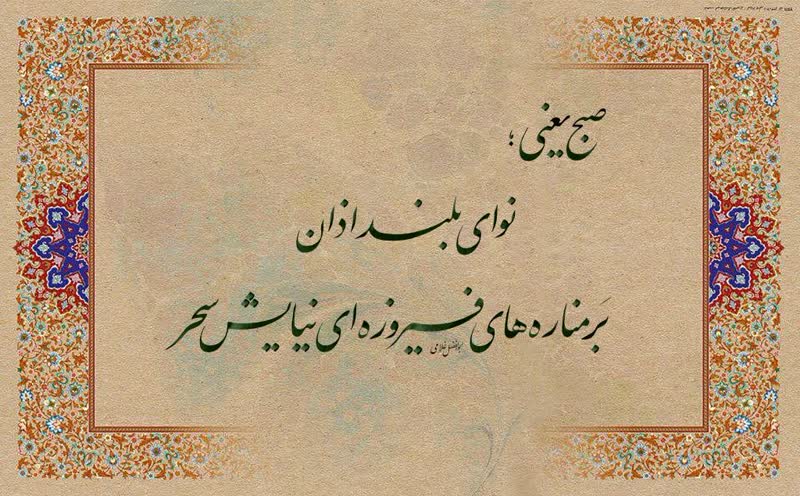 صبح یعنی؛
نوای بلند اذان
بَر مناره های فیروزه ای نیایش سحر
ابوالفضل غلامی